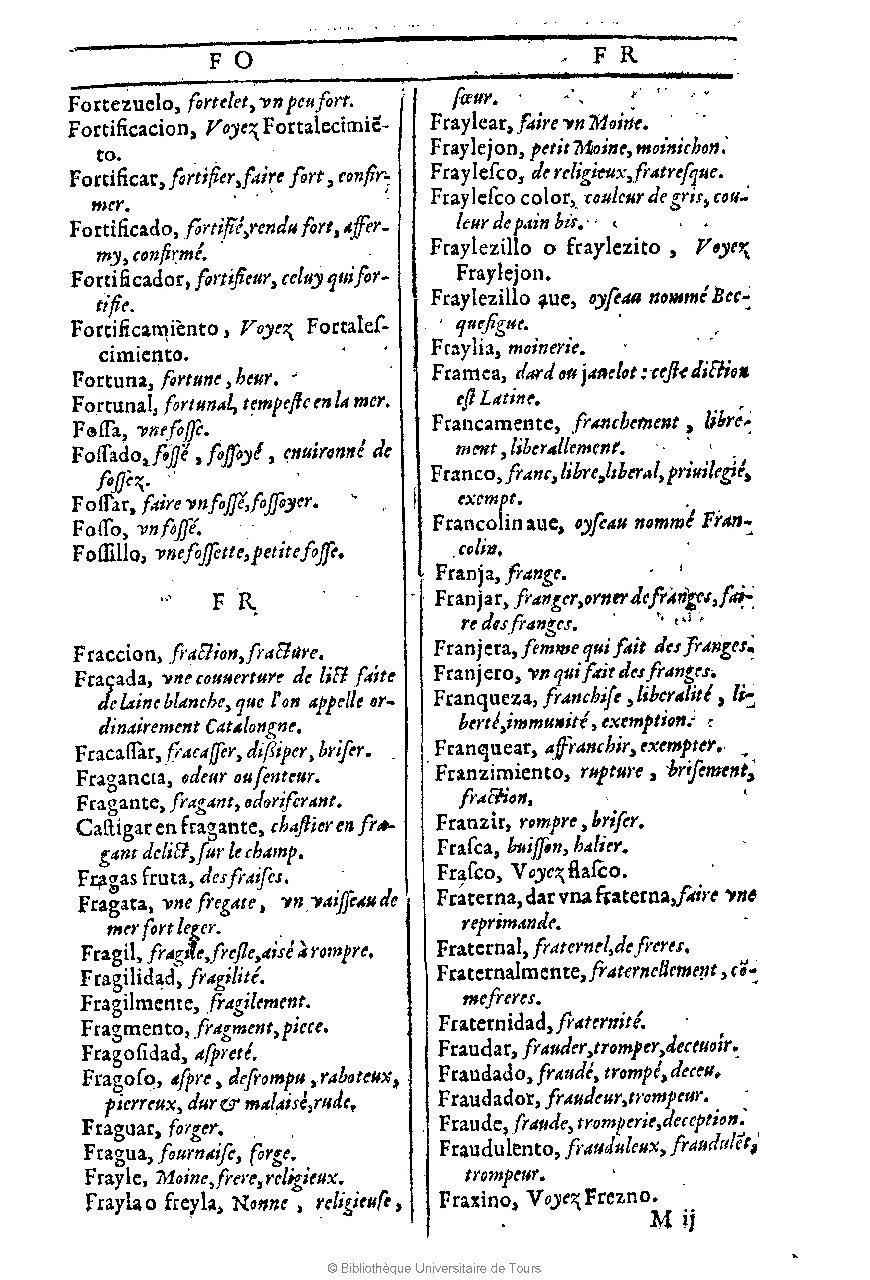 F O
Fortezuelo, fortelet, vn peu fort.
Fortificacion, Voyez Fortalecimiẽ-
to.
Fortificar, fortifier, faire fort, confir-
mer.
Fortificado, fortifié, rendu fort, affer-
my, confirmé.
Fortificador, fortifieur, celuy qui for-
tifie.
Fortificamiento, Voyez Fortaleſ-
cimiento.
Fortuna, fortune, heur.
Fortunal, fortunal, tempeſte en la mer.
Foſſa, vne foſſe.
Foſſado, foſſé, foſſoyé, enuironné de
foſſez.
Foſſar, faire vn foſſé, foſſoyer.
Foſſo, vn foſſé.
Foſſillo, vne foſſette, petite foſſe.
F R
Fraccion, fraction, fracture.
Fraçada, vne couuerture de lict faite
de laine blanche, que l'on appelle or-
dinairement Catalongne.
Fracaſſar, fracaſſer, diſſiper, briſer.
Fragancia, odeur ou ſenteur.
Fragante, fragant, odoriferant.
Caſtigar en fragante, chaſtier en fra-
gant delict, ſur le champ.
Fragas fruta, des fraiſes.
Fragata, vne fregate, vn vaiſſeau de
mer fort leger.
Fragil, fragile, freſle, aisé à rompre.
Fragilidad, fragilité.
Fragilmente, fragilement.
Fragmento, fragment, piece.
Fragoſidad, aſpreté.
Fragoſo, aſpre, deſrompu, raboteux,
pierreux, dur & malaisè, rude.
Fraguar, forger.
Fragua, fournaiſe, forge.
Frayle, Moine, frere, religieux.
Frayla o freyla, Nonne, religieuſe,
F R
ſœur.
Fraylear, faire vn Moine.
Fraylejon, petit Moine, moinichon.
Frayleſco, de religieux, fratreſque.
Frayleſco color, couleur de gris, cou-
leur de pain bis.
Fraylezillo o fraylezito, Voyez
Fraylejon.
Fraylezillo aue, oyſeau nommé Bec-
quefigue.
Fraylia, moinerie.
Framea, dard ou janelot : ceſte diction
eſt Latine.
Francamente, franchement, libre-
ment, liberallement.
Franco, franc, libre, liberal, priuilegié,
exempt.
Francolin aue, oyſeau nommé Fran-
colin.
Franja, frange.
Franjar, franger, orner de franges, fai-
re des franges.
Franjera, femme qui fait des franges.
Franjero, vn qui fait des franges.
Franqueza, franchiſe, liberalité, li-
berté, immunité, exemption.
Franquear, affranchir, exempter.
Franzimiento, rupture, briſement,
fraction.
Franzir, rompre, briſer.
Fraſca, buiſſon, halier.
Fraſco, Voyez flaſco.
Fraterna, dar vna fraterna, faire vne
reprimande.
Fraternal, fraternel, de freres.
Fraternalmente, fraternellement, cõ-
me freres.
Fraternidad, fraternité.
Fraudar, frauder, tromper, deceuoir.
Fraudado, fraudé, trompé, deceu.
Fraudador, fraudeur, trompeur.
Fraude, fraude, tromperie, deception.
Fraudulento, frauduleux, fraudulẽt,
trompeur.
Fraxino, Voyez Frezno.
M ij
© Bibliothèque Universitaire de Tours